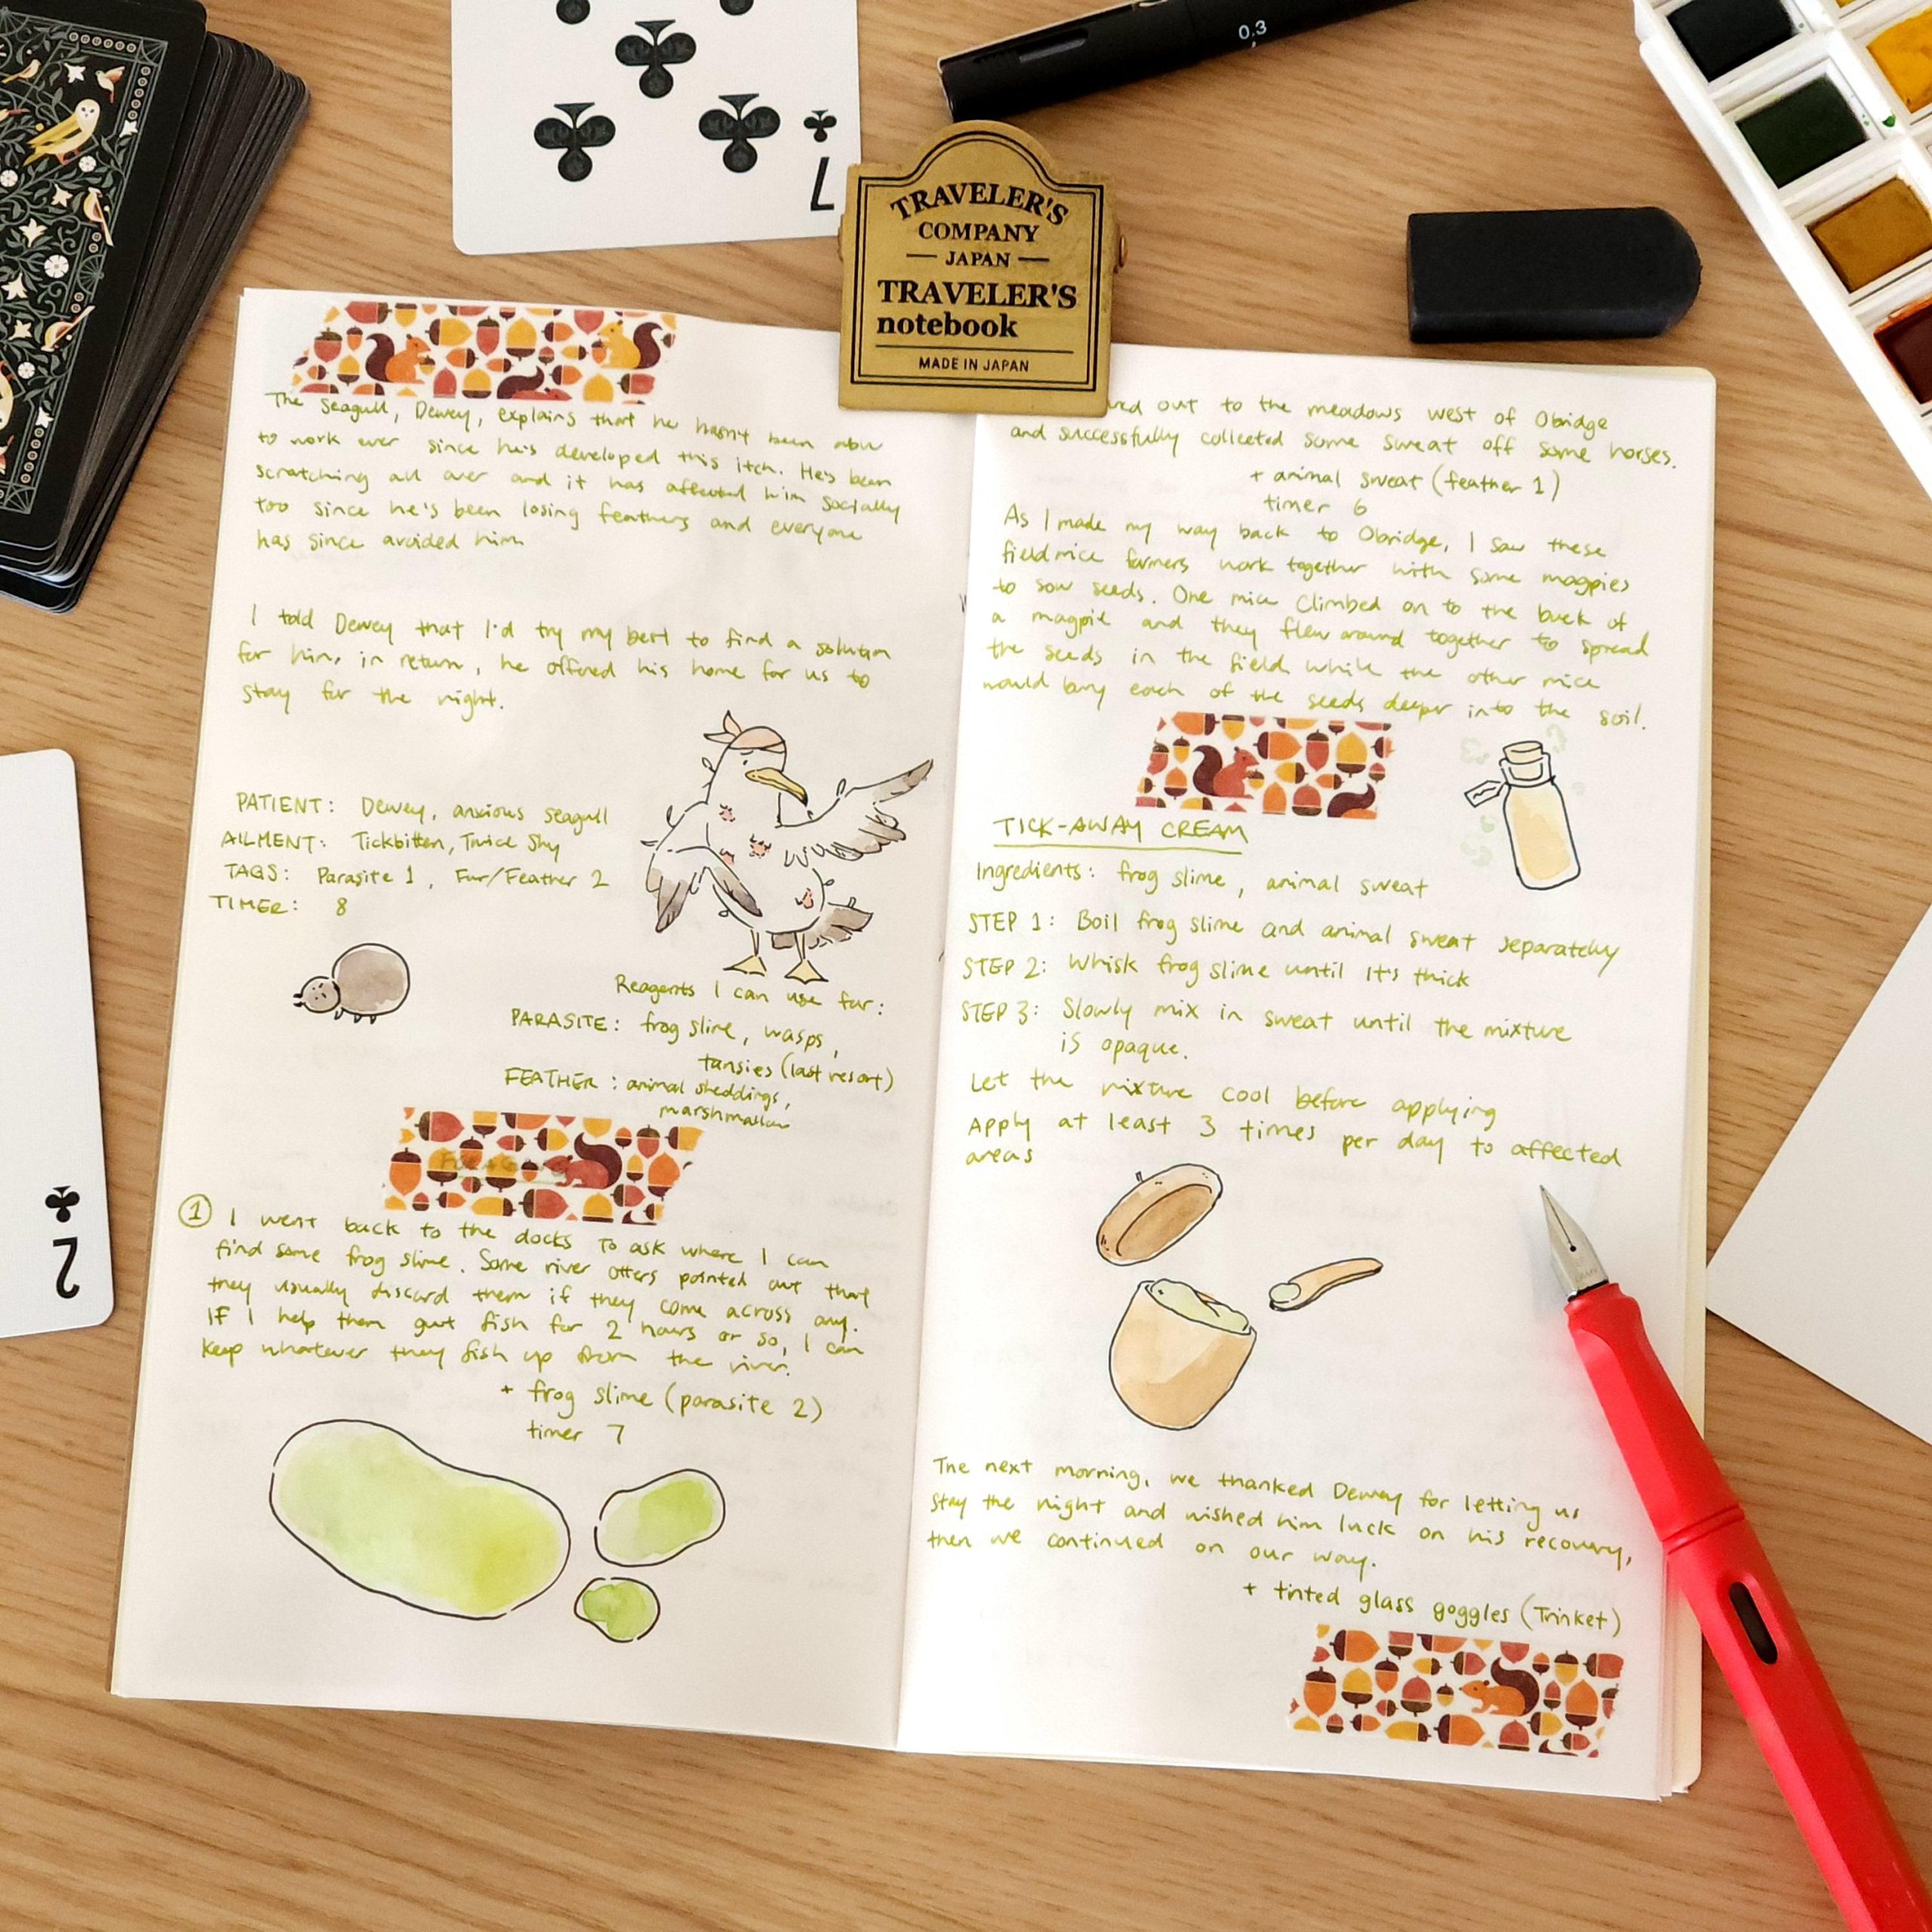 7
0.3
TRAVELER'S
COMPANY
JAPAN
TRAVELER'S
notebook
MADE IN JAPAN
2
The seagull, Dewey, explains that he hasn't been able
to work ever since he's developed this itch. He's been
scratching all over and it has affected him socially
too since he's been losing feathers and everyone
has since avoided him
I told Dewey that I'd try my best to find a solution
for him, in return, he offered his home for us to
stay for the night.
PATIENT: Dewey, anxious seagull
AILMENT: Tickbitten, Twice Shy
TAGS: Parasite 1, Fur/Feather 2
TIMER: 8
Reagents I can use for:
PARASITE: frog slime, wasps,
tansies (last resort)
FEATHER: animal sheddings,
marshmallow
1 I went back to the docks to ask where I can
find some frog slime. Some river otters pointed out that
they usually discard them if they come across any.
If I help them gut fish for 2 hours or so, I can
keep whatever they fish up from the river.
+ frog slime (parasite 2)
timer 7
out to the meadows west of Obridge
and successfully collected some sweat off some horses.
+ animal sweat (feather 1)
timer 6
As I made my way back to Obridge, I saw these
fieldmice farmers work together with some magpies
to sow seeds. One mice climbed on to the back of
a magpie and they flew around together to spread
the seeds in the field while the other mice
would bury each of the seeds deeper into the soil.
TICK-AWAY CREAM
Ingredients: frog slime, animal sweat
STEP 1: Boil frog slime and animal sweat separately
STEP 2: Whisk frog slime until it's thick
STEP 3: Slowly mix in sweat until the mixture
is opaque.
Let the mixture cool before applying
Apply at least 3 times per day to affected
areas
The next morning, we thanked Dewey for letting us
stay the night and wished him luck on his recovery,
then we continued on our way.
+ tinted glass goggles (Trinket)